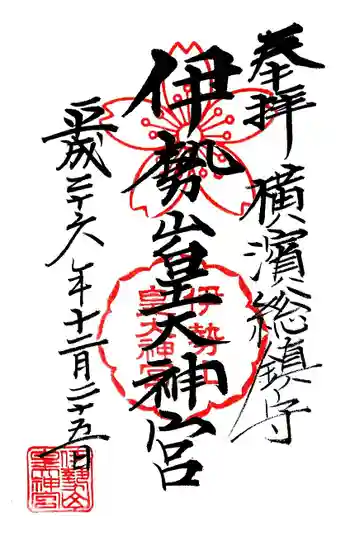 奉拝
横濱総鎮守
伊勢山皇大神宮
平成二十六年十二月二十五日
伊勢山
皇大神宮
伊勢山
皇大神宮